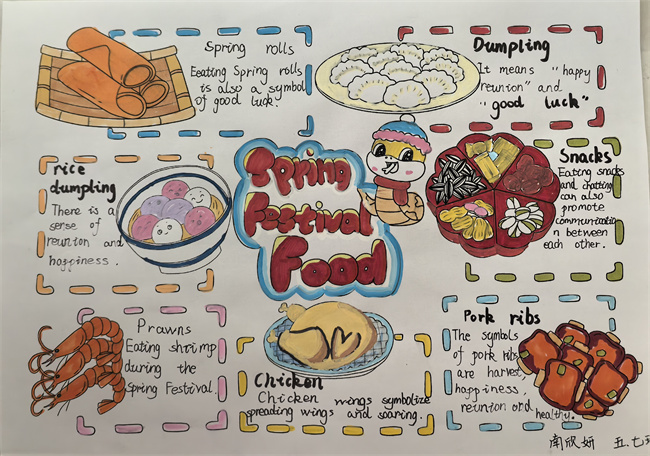 Spring rolls
Eeating Spring rolls
is also a symbol
of good luck.
Dumpling
It means "happy
reunion" and
"good luck"
Spring
Festival
Food
rice
dumpling
There is a
sense of
reunion and
happiness.
Snacks
Eating snacks
and chatting
can also
promote
communicatio
n between
each other.
Prawns
Eating shrimp
during the
Spring Festival.
Chicken
Chicken wings symbolize
spreading wings and soaring.
Pork ribs
The symbols
of pork ribs
are harvest,
happiness,
reunion and
healthy.
南欣妍 五.七班